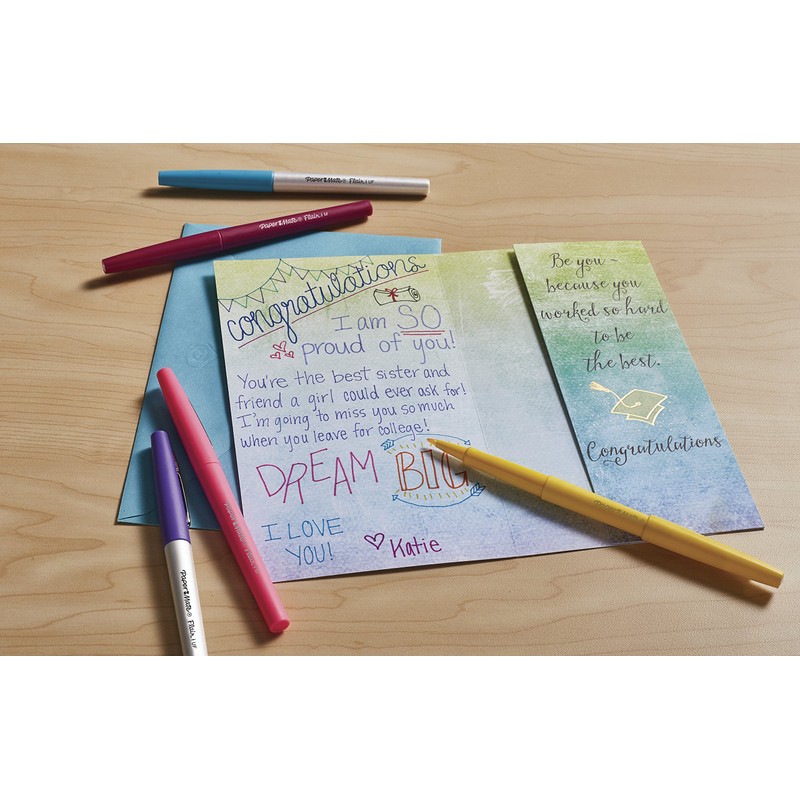 Paper Mate® Flair | UF
Paper Mate® Flair | M
congratulations
I am SO
proud of you!
You're the best sister and
friend a girl could ever ask for!
I'm going to miss you so much
when you leave for college!
DREAM BIG
I LOVE
YOU!
Katie
Be you ~
because you
worked so hard
to be
the best.
Congratulations
Paper Mate® Flair | UF